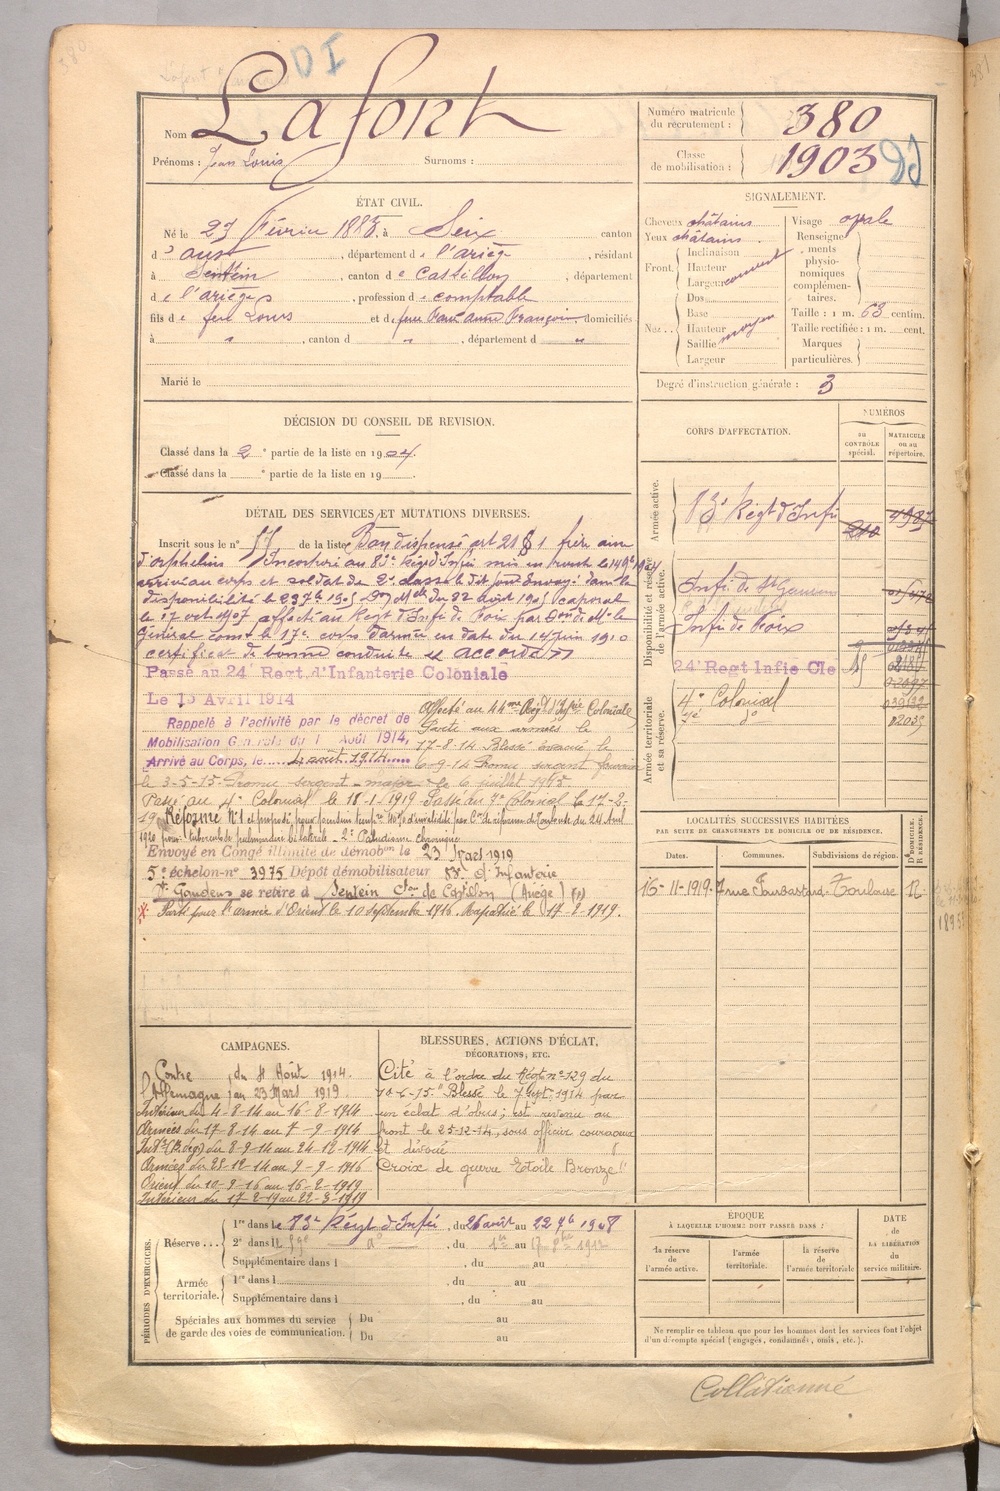 380
DI
Nom Lafont
Prénoms : Jean Louis Surnoms :
Numéro matricule du recrutement : 380
Classe de mobilisation : 1903
ÉTAT CIVIL.
Né le 27 Février 1883, à Seix canton
d' oust, département de l'ariège, résidant
à Sentein, canton de Castillon, département
de l'ariège, profession de comptable
fils de feu Louis et de feue Anne Françoise domiciliés
à " , canton d " , département d "
Marié le
SIGNALEMENT.
Cheveux châtains Visage ovale
Yeux châtains Renseignements physionomiques complémentaires.
Front. Inclinaison
Hauteur
Largeur
Nez... Dos
Base
Hauteur
Saillie moyen
Largeur
Taille : 1 m. 63 centim.
Taille rectifiée : 1 m. cent.
Marques particulières.
Degré d'instruction générale : 3
DÉCISION DU CONSEIL DE REVISION.
Classé dans la 2e partie de la liste en 1904.
Classé dans la e partie de la liste en 19
DÉTAIL DES SERVICES ET MUTATIONS DIVERSES.
Inscrit sous le n° de la liste Bon dispensé art 21 § 1 frère aîné
d'orphelins Incorporé au 83e Régt d'Infie mis en route le
arrivé au corps et soldat de 2e classe le dit jour Envoyé dans la
disponibilité le 23 7bre 1905 du 22 août 1905 caporal
le 17 oct 1907 affecté au Regt d'Infie de Foix par Mr le
Général comt le 17e corps d'armée en date du 14 juin 1910
certificat de bonne conduite "accordé"
Passé au 24e Regt d'Infanterie Coloniale
Le 15 Avril 1914
Rappelé à l'activité par le décret de
Mobilisation Générale du 1 Août 1914,
Arrivé au Corps, le 4 août 1914
Affecté au 44me Régt d'Infie Coloniale
Parti aux armées le
17-8-14 Blessé évacué le
6-9-14 Promu sergent fourrier
le 3-5-15 Promu sergent-major le 6 juillet 1915
Passé au 4e Colonial le 18-1-1919 Passé au 7e Colonial le 17-2-
19 Réformé N°1 et proposé pour pension par Con de réforme de Toulouse du 24 Avril
1920 pour tuberculose pulmonaire bilatérale - 2° Paludisme chronique
Envoyé en Congé illimité de démobon le 23 Mars 1919
5e échelon-n° 3975 Dépôt démobilisateur 83e d'Infanterie
St Gaudens se retire à Sentein Cton de Castillon (Ariège)
Parti pour l'armée d'Orient le 10 septembre 1916. Rapatrié le 17-2-1919.
CORPS D'AFFECTATION.
NUMÉROS
au CONTRÔLE spécial.
MATRICULE ou au répertoire.
Armée active.
83e Régt d'Infie
Disponibilité et réserve de l'armée active.
Infie de St Gaudens
Infie de Foix
24e Regt Infie Cle
Armée territoriale et sa réserve.
4e Colonial
7e do
LOCALITÉS SUCCESSIVES HABITÉES
PAR SUITE DE CHANGEMENTS DE DOMICILE OU DE RÉSIDENCE.
Dates. Communes. Subdivisions de région. D. DOMICILE. R. RÉSIDENCE.
16-11-1919 7 rue Toulouse R
CAMPAGNES.
Contre l'Allemagne du 4 Août 1914.
au 23 Mars 1919
Intérieur du 4-8-14 au 16-8-1914
Armées du 17-8-14 au 7-9-1914
Int. du 8-9-14 au 24-12-1914
Armées du 25-12-14 au 9-9-1916
Orient du 10-9-16 au 16-2-1919
Intérieur du 17-2-19 au 22-3-1919
BLESSURES, ACTIONS D'ÉCLAT,
DÉCORATIONS, ETC.
Cité à l'ordre du Régt n° 129 du
10-6-15 "Blessé le 7 Sept. 1914 par
un éclat d'obus; est revenu au
front le 25-12-14, sous officier courageux
et dévoué
Croix de guerre Etoile Bronze"
PÉRIODES D'EXERCICES.
Réserve... 1re dans le 83e Régt d'Infie, du 26 août au 22 7bre 1908
2e dans le do, du 1er au 17 1912
Supplémentaire dans l du au
Armée territoriale. 1re dans l , du au
Supplémentaire dans l , du au
Spéciales aux hommes du service de garde des voies de communication. Du au
Du au
ÉPOQUE
À LAQUELLE L'HOMME DOIT PASSER DANS :
la réserve de l'armée active.
l'armée territoriale.
la réserve de l'armée territoriale
DATE DE LA LIBÉRATION du service militaire.
Ne remplir ce tableau que pour les hommes dont les services font l'objet
d'un décompte spécial (engagés, condamnés, omis, etc.).
Collationné